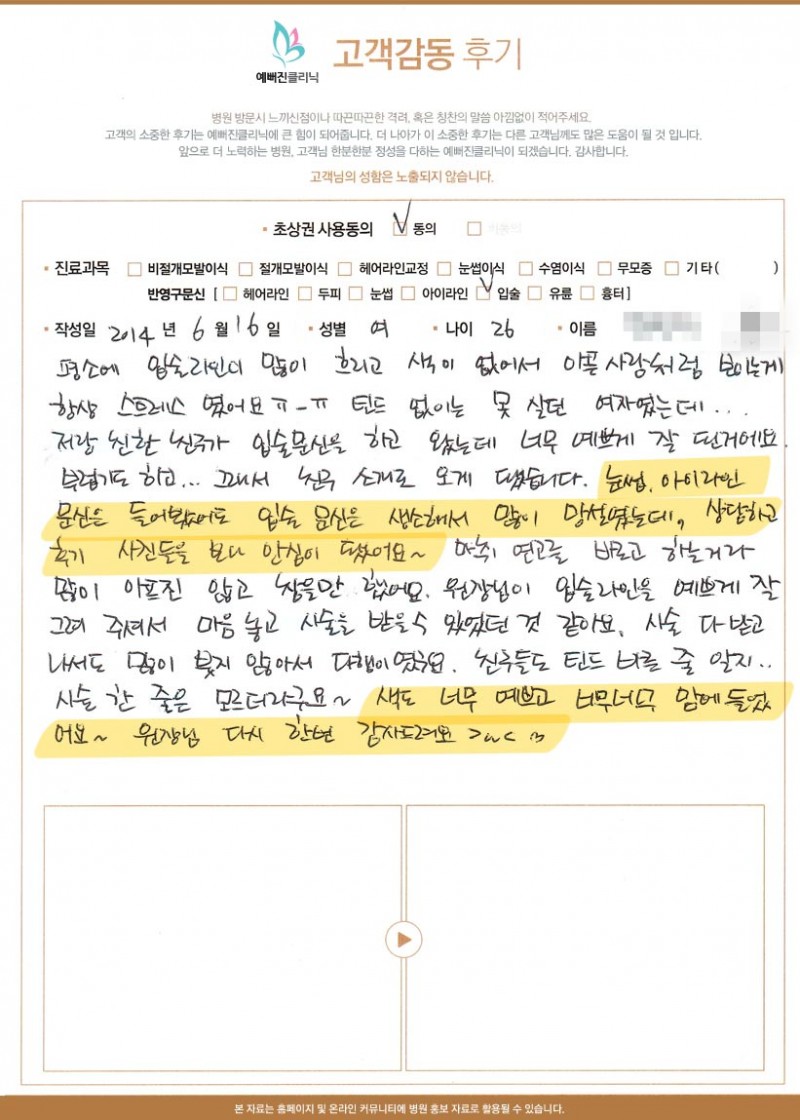 예뻐진클리닉
고객감동 후기
병원 방문시 느끼신점이나 따끈따끈한 격려, 혹은 칭찬의 말씀 아낌없이 적어주세요.
고객의 소중한 후기는 예뻐진클리닉에 큰 힘이 되어줍니다. 더 나아가 이 소중한 후기는 다른 고객님께도 많은 도움이 될 것 입니다.
앞으로 더 노력하는 병원, 고객님 한분한분 정성을 다하는 예뻐진클리닉이 되겠습니다. 감사합니다.
고객님의 성함은 노출되지 않습니다.
• 초상권 사용동의 ☑ 동의 □
• 진료과목 □ 비절개모발이식 □ 절개모발이식 □ 헤어라인교정 □ 눈썹이식 □ 수염이식 □ 무모증 □ 기타( )
반영구문신 [ □ 헤어라인 □ 두피 □ 눈썹 □ 아이라인 ☑ 입술 □ 유륜 □ 흉터 ]
• 작성일 2014 년 6 월 16 일 • 성별 여 • 나이 26 • 이름
평소에 입술라인이 많이 흐리고 색이 없어서 아픈 사람처럼 보이는게
항상 스트레스 였어요 ㅠ-ㅠ 틴트 없이는 못 살던 여자였는데...
저랑 친한 친구가 입술문신을 하고 왔는데 너무 예쁘게 잘 된거에요.
부럽기도 하고... 그래서 친구 소개로 오게 됐습니다. 눈썹, 아이라인
문신은 들어봤어도 입술 문신은 생소해서 많이 망설였는데, 상담하고
후기 사진들을 보니 안심이 됐어요~ 마취 연고를 바르고 하는거라
많이 아프진 않고 참을만 했어요. 원장님이 입술라인을 예쁘게 잘
그려 주셔서 마음 놓고 시술을 받을수 있었던 것 같아요. 시술 다 받고
나서도 많이 붓지 않아서 다행이였구요. 친구들도 틴트 바른 줄 알지..
시술 한 줄은 모르더라구요~ 색도 너무 예쁘고 너무너무 맘에 들었
어요~ 원장님 다시 한번 감사드려요 >ㅂ<
본 자료는 홈페이지 및 온라인 커뮤니티에 병원 홍보 자료로 활용될 수 있습니다.